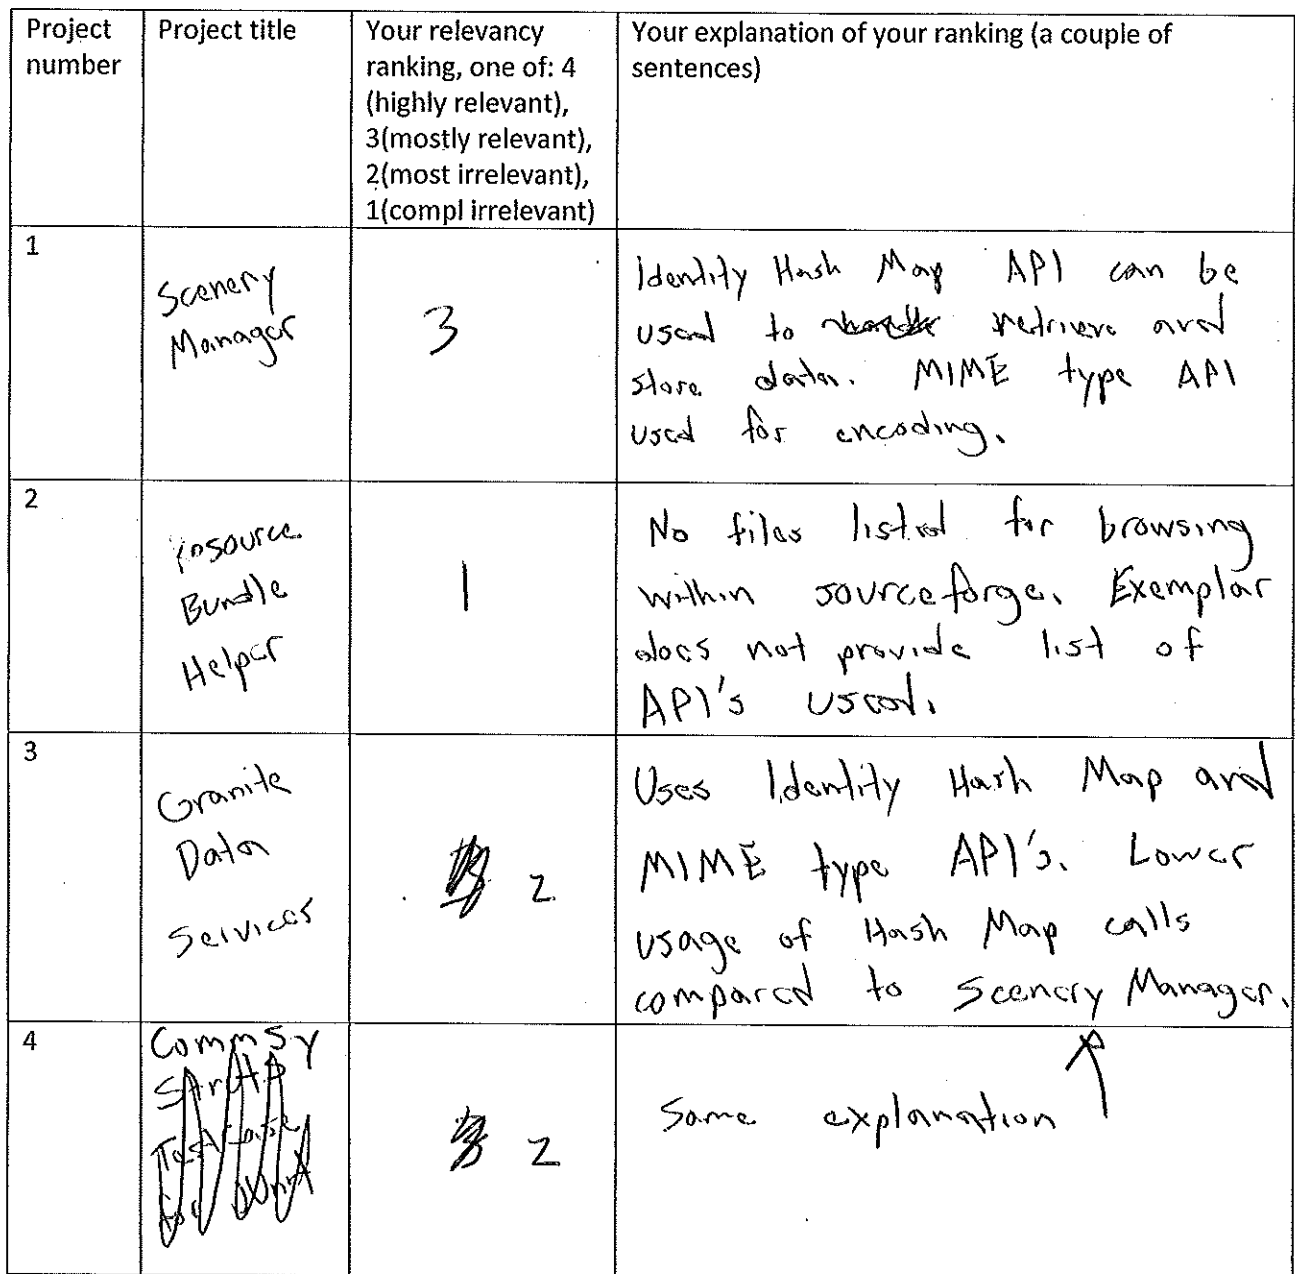 Project number
Project title
Your relevancy ranking, one of: 4 (highly relevant), 3(mostly relevant), 2(most irrelevant), 1(compl irrelevant)
Your explanation of your ranking (a couple of sentences)
1
Scenery
Manager
3
Identity Hash Map API can be
used to retrieve and
store data. MIME type API
used for encoding.
2
Bundle
Helper
1
No files listed for browsing
within sourceforge. Exemplar
does not provide list of
API's used.
3
Granite
Data
Services
2
Uses Identity Hash Map and
MIME type API's. Lower
usage of Hash Map calls
compared to Scenery Manager.
4
CommSy
2
Same explanation